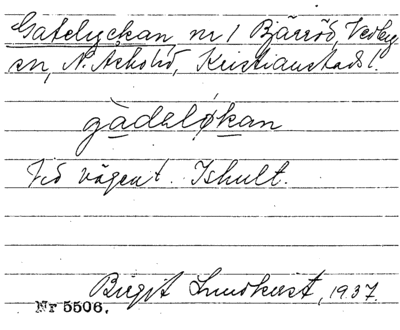 Gatelyckan, nr 1 Bjärröd, Vedby
sn, N. Åsbo hd, Kristianstads l.
gàdelykan
Vid vägen t. Ishult.
Birgit Lundkvist, 1937.
Nr 5506.